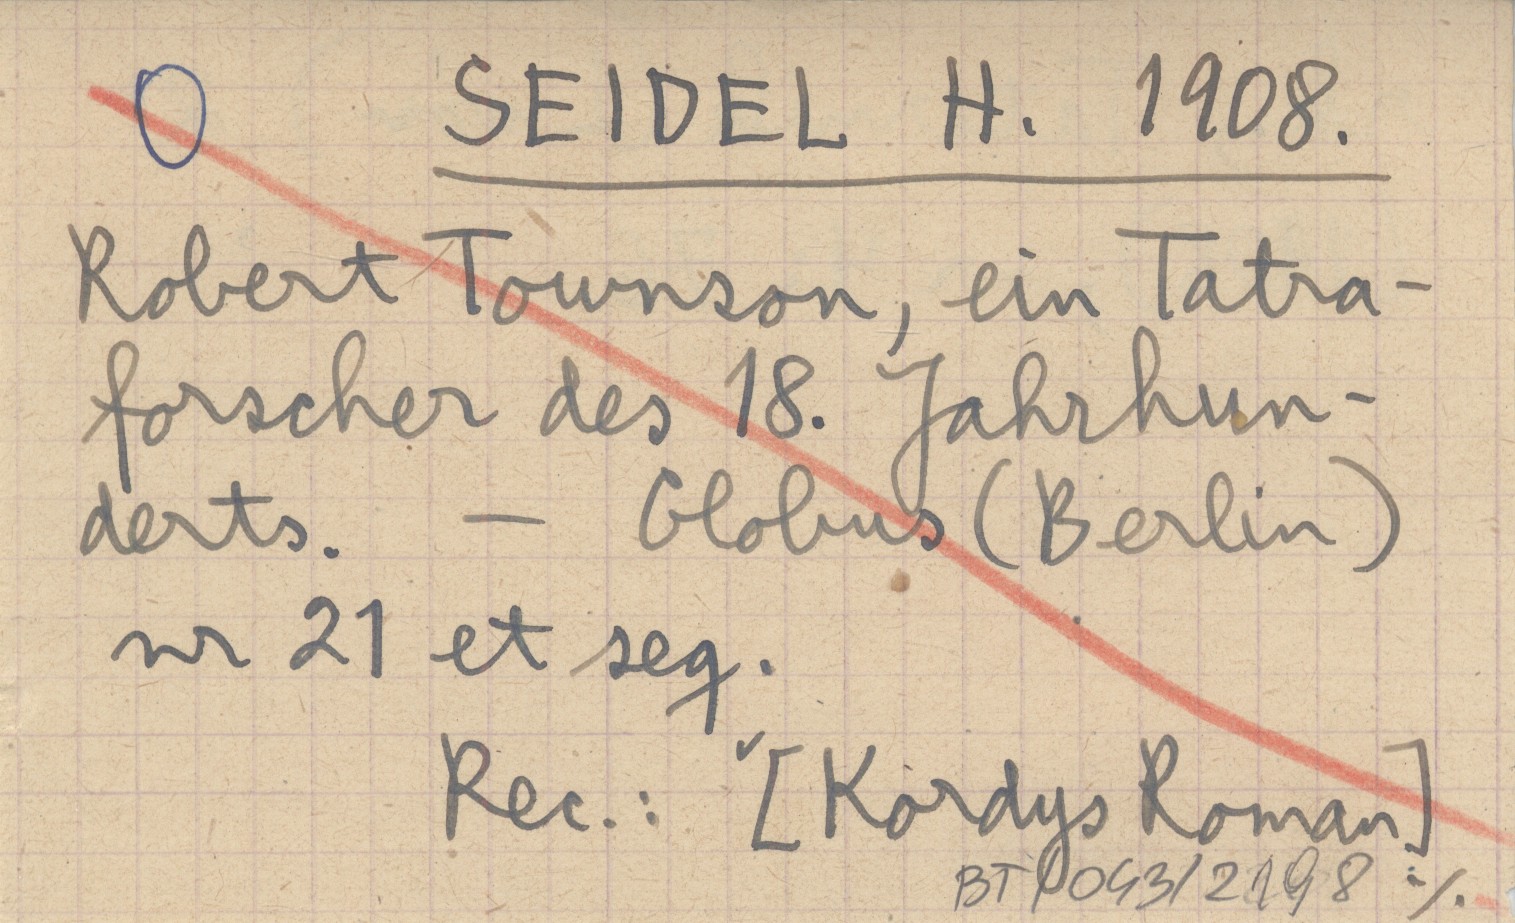 SEIDEL H. 1908.
Robert Townson, ein Tatra-
forscher des 18. Jahrhun-
derts. — Globus (Berlin)
nr 21 et seq.
Rec.: [Kordys Roman]
BT/043/2198 ·/.